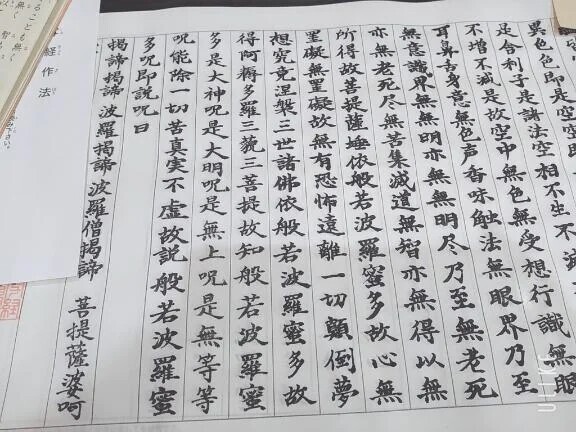 異色色即是空
是舍利子是諸法空相不生不滅
不増不減是故空中無色無受想行識無眼
耳鼻舌身意無色声香味触法無眼界乃至
無意識界無無明亦無無明尽乃至無老死
亦無老死尽無苦集滅道無智亦無得以無
所得故菩提薩埵依般若波羅蜜多故心無
罣礙無罣礙故無有恐怖遠離一切顛倒夢
想究竟涅槃三世諸佛依般若波羅蜜多故
得阿耨多羅三藐三菩提故知般若波羅蜜
多是大神呪是大明呪是無上呪是無等等
呪能除一切苦真実不虚故説般若波羅蜜
多呪即説呪曰
掲諦掲諦 波羅掲諦 波羅僧掲諦 菩提薩婆呵
経作法
ることも無く
ULIKE